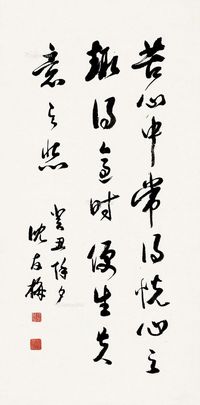 苦心中常得悦心之
趣得意时便生失
意之悲
癸丑除夕
沈左梅